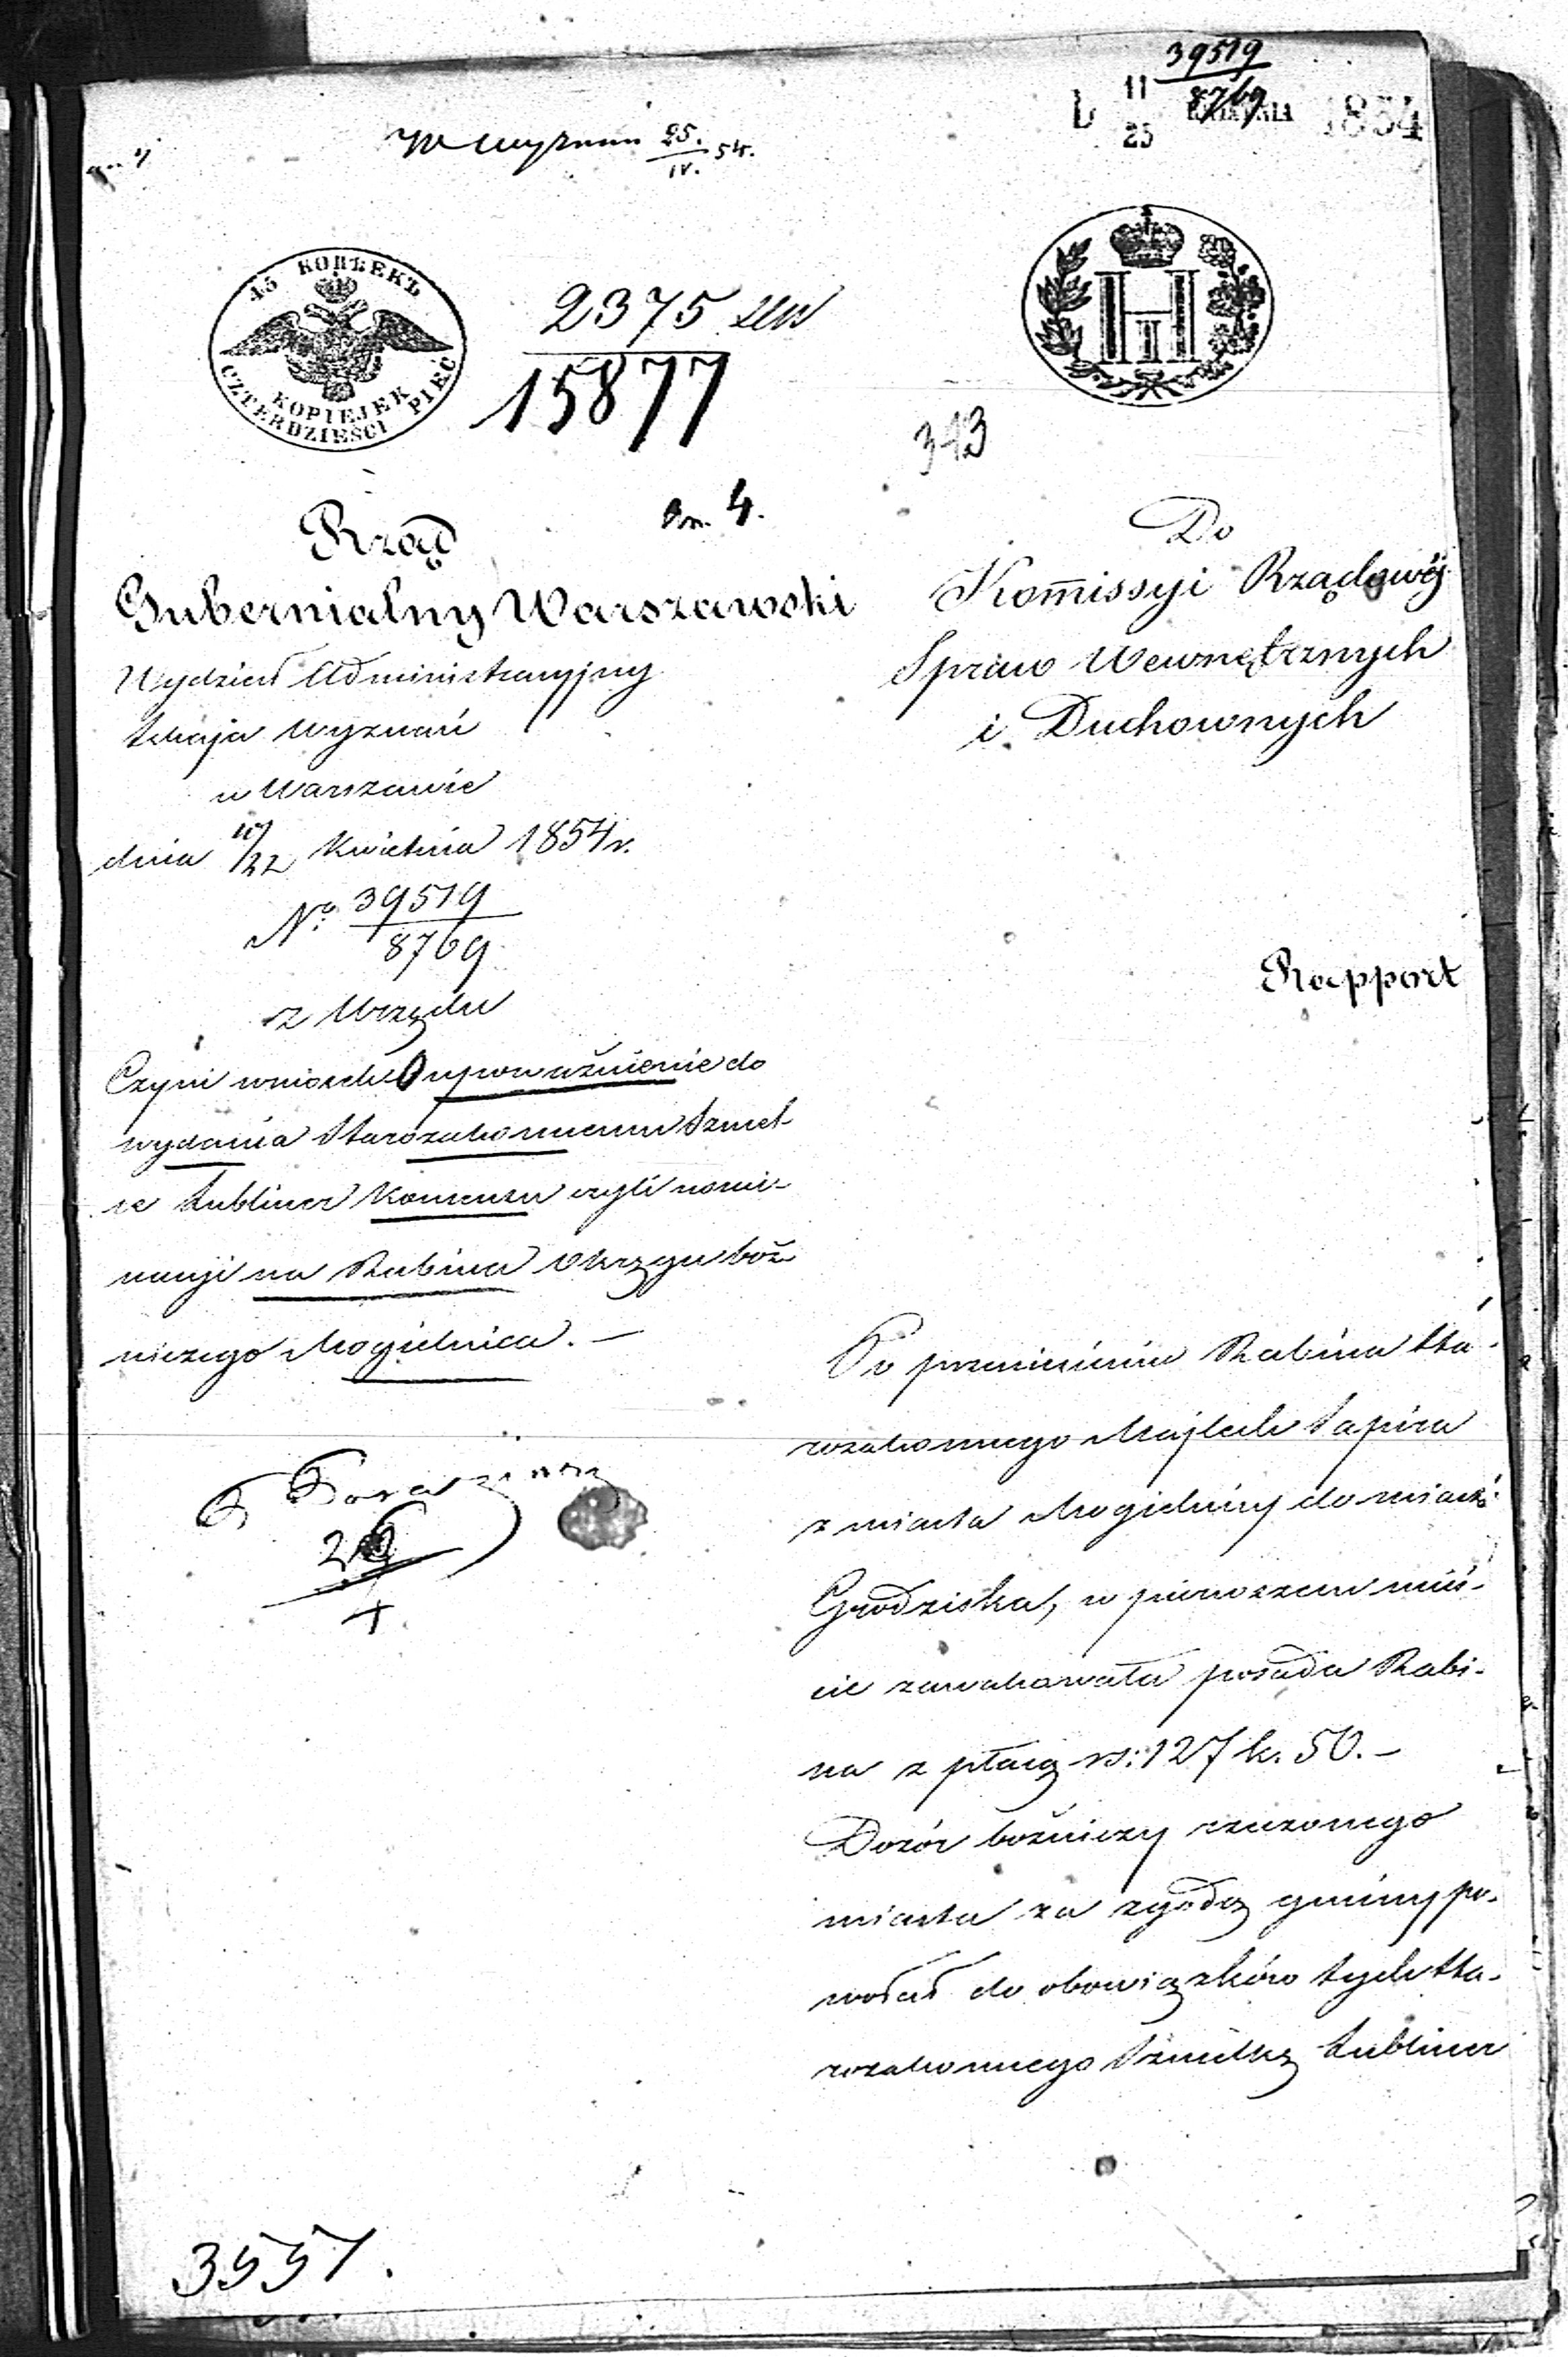 39519
8769
11
25
1854
W Wyznań 25/IV. 54.
45 КОПѢЕКЪ
KOPIEJEK
CZTERDZIEŚCI PIĘĆ
H
2375
15877
343
4.
Rząd
Gubernialny Warszawski
Wydział Administracyjny
Sekcja Wyznań
w Warszawie
dnia 10/22 Kwietnia 1854 r.
No. 39519
8769
z Urzędu
Czyni wniosek O upoważnienie do
wydania Starozakonnemu Szmel-
ce Lubliner Konsensu czyli nomi-
nacyi na Rabina Okręgu boż-
niczego Mogielnica. —
Do
Kommissyi Rządowéj
Spraw Wewnętrznych
i Duchownych
Rapport
Po przeniesieniu Rabina Sta-
rozakonnego Majlech Sapira
z miasta Mogielnicy do miasta
Grodziska, w pierwszem mieś-
cie zawakowała posada Rabi-
na z płacą rs: 127 k. 50. —
Dozór bożniczy rzeczonego
miasta za zgodą gminy po-
wołał do obowiązków tych Sta-
rozakonnego Szmelkę Lubliner
3557.